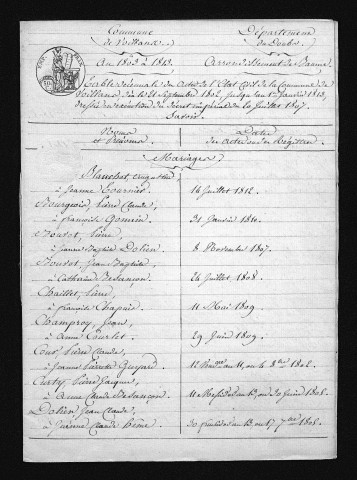 Commune
de Voillans.
Département
du Doubs.
An 1803 à 1813.
Arrondissement de Baume.
Table décennale des actes de l'Etat Civil de la Commune de
Voillans, dès le 21 Septembre 1802, jusqu'au 1er janvier 1813,
dressée en exécution du décret impérial du 20 Juillet 1807.
Savoir.
Noms
et Prénoms.
Dates
des Actes ou des Registres
Mariages
Blanchot,
à Jeanne Tournier
16 juillet 1812.
Bourgeois, Pierre Claude,
à françoise
31 Janvier 1810.
Bourot, Pierre,
à Jeanne Baptiste Dolien
8 Novembre 1807.
Bourot, Jean Baptiste
à Catherine Besançon
26 Juillet 1808.
Chaillet, Pierre,
à françoise Chapuis.
11 Mai 1809.
Champroy, Jean,
à Anne Courlet
29 Juin 1809.
Cour, Pierre Claude,
à Jeanne Pierrette Guyard
Curty, Pierre Jacques,
à Anne Claude Besançon
11 Messidor an 13, ou 30 Juin 1805.
Dolien Jean Claude,